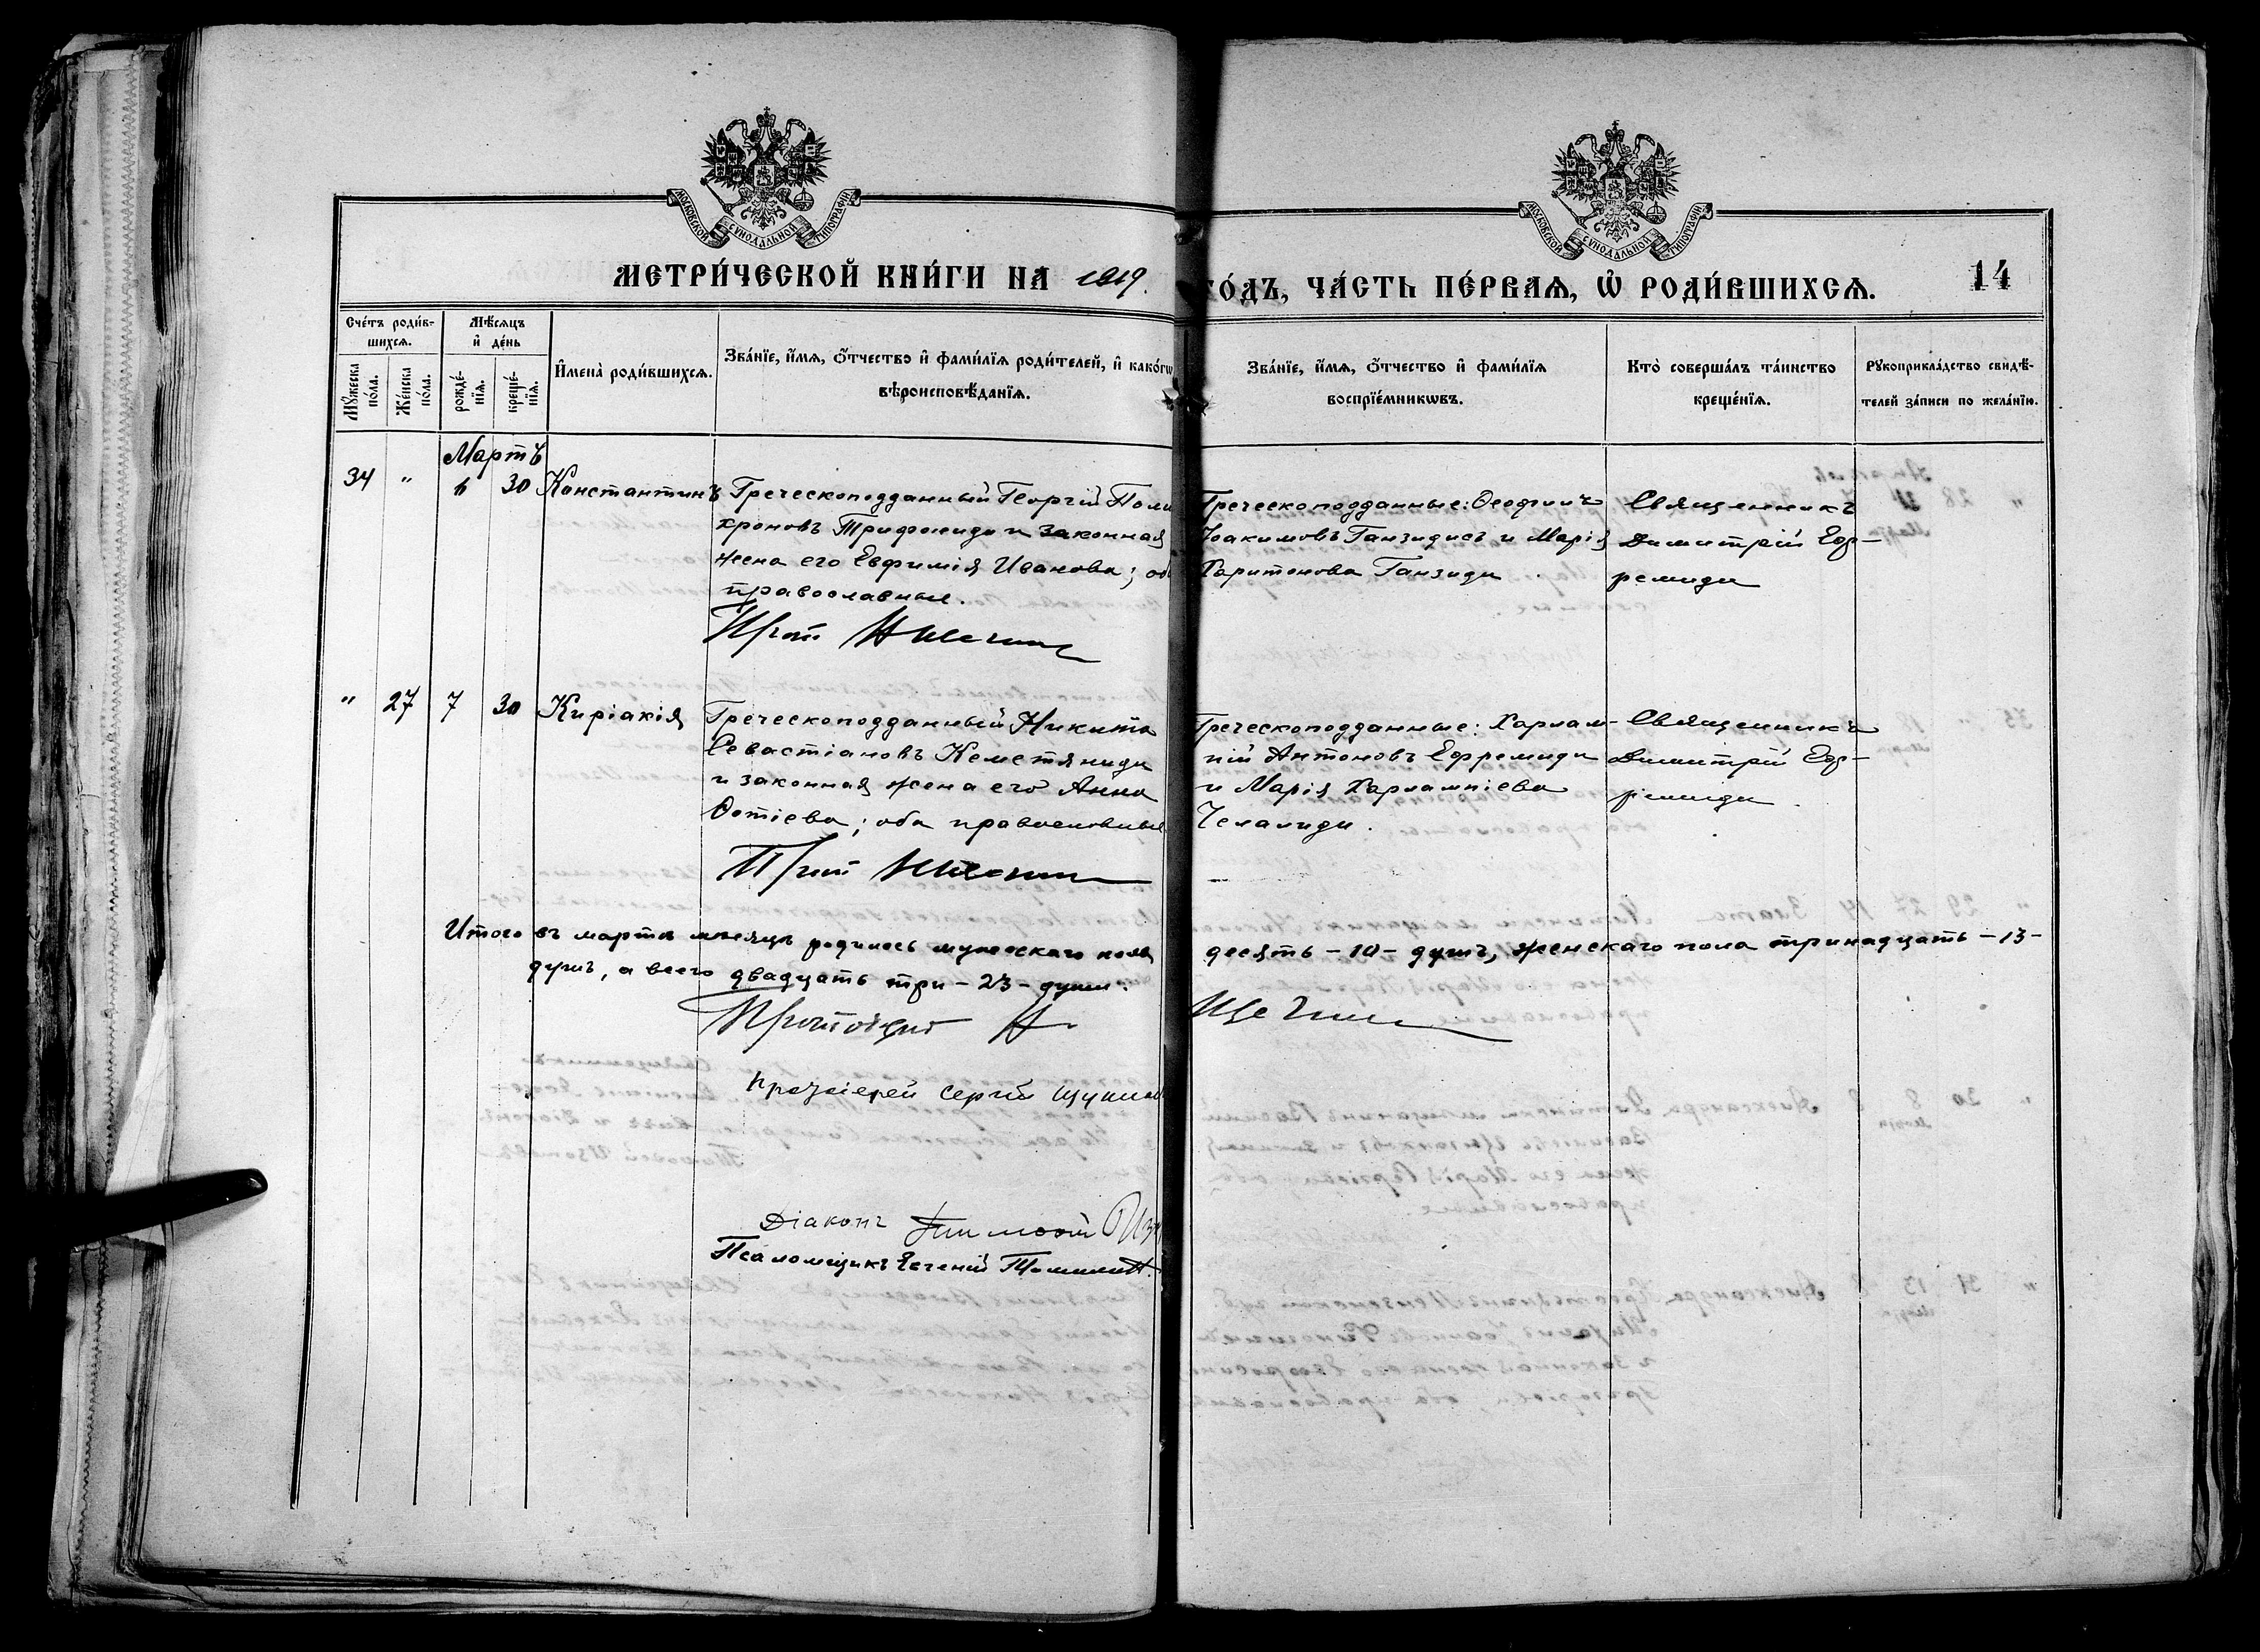 МОСКОВСКОЙ СУНОДАЛЬНОЙ ТИПОГРАФІИ
МОСКОВСКОЙ СУНОДАЛЬНОЙ ТИПОГРАФІИ
МЕТРИ́ЧЕСКОЙ КНИ́ГИ НА 1919.
ГО́ДЪ, ЧА́СТЬ ПЕ́РВАЯ, Ѡ҆ РОДИ́ВШИХСЯ. 14
Сче́тъ роди́в-
шихся.
Мꙋ́жеска по́ла.
Же́нска по́ла.
Мѣ́сяцъ
и҆ де́нь
рожде́-
нїя.
креще́-
нїя.
И҆мена̀ роди́вшихся.
Зва́нїе, и҆́мя, ѻ҆́тчество и҆ фами́лїя роди́телей, и҆ како́гѡ
вѣроисповѣ́данїя.
Зва́нїе, и҆́мя, ѻ҆́тчество и҆ фами́лїя
воспрїе́мникѡвъ.
Кто̀ соверша́лъ та́инство
креще́нїя.
Рꙋкоприкла́дство свидѣ́-
телей за́писи по жела́нїю.
Мартъ
34 " 6 30 Константинъ
Греческоподданный Георгій Поли
хроновъ Трифониди и законная
жена его Евфимія Иванова; оба
православные.
Прот Н Щечкин
Греческоподданные: Ѳеофилъ
Іоакимовъ Ганзидисъ и Марія
Харитонова Ганзиди
Священникъ
Димитрій Еф-
ремиди
" 27 7 30 Киріакія
Греческоподданный Никита
Севастіановъ Кеметяниди
и законная жена его Анна
Фотіева; оба православные
Прот
Греческоподданные: Харлам-
пій Антоновъ Ефремиди
и Марія Харлампіева
Челалиди.
Священникъ
Димитрій Еф-
ремиди.
Итого въ мартѣ мѣсяцѣ родилось мужескаго пола
десять - 10 - душъ, женскаго пола тринадцать - 13 -
душъ, а всего двадцать три - 23 - души.
Протоіерей Н.
Протоіерей Сергій Щукин
Діаконъ Тимоѳей Из
Псаломщикъ Евгеній